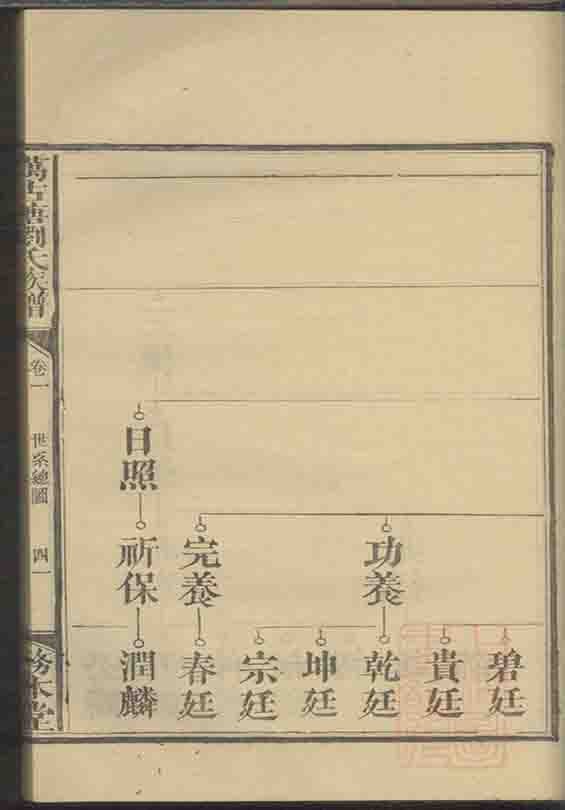 碧廷
貴廷
功養
乾廷
坤廷
宗廷
完養
春廷
日照
祈保
潤麟
萬古塘劉氏族譜
卷一
世系總圖
四一
務本堂